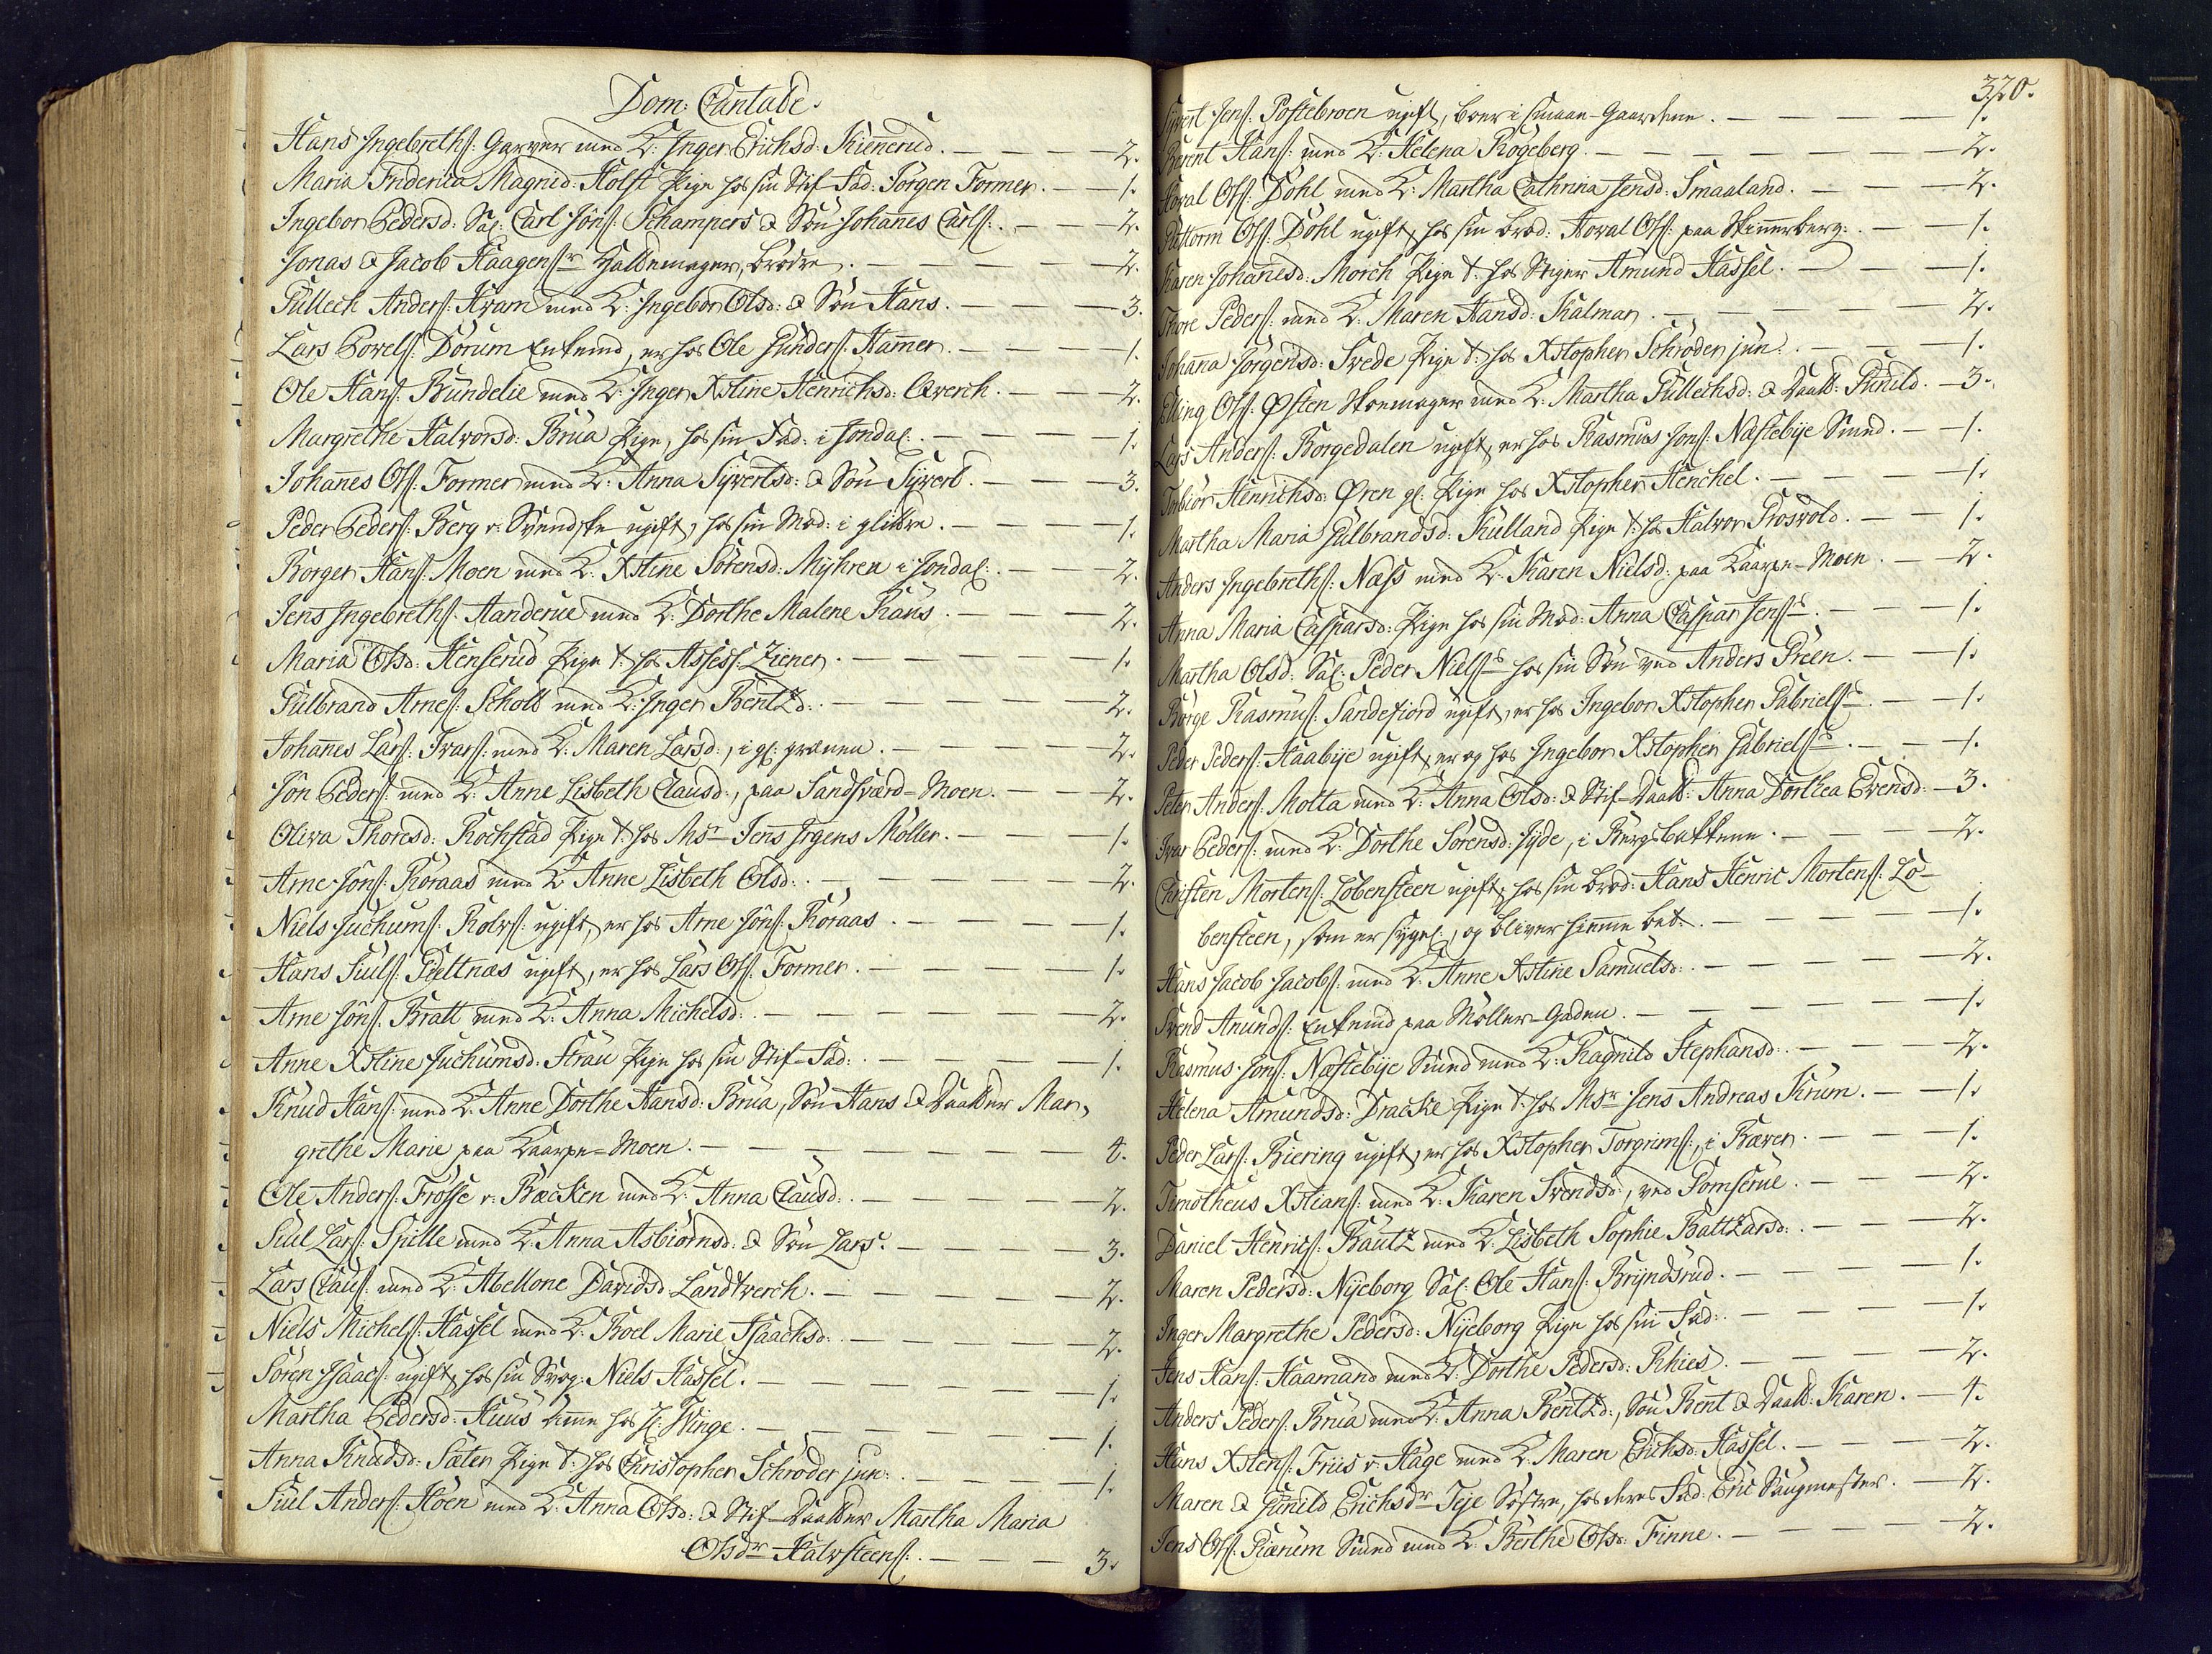 Dom: Cantate.
Hans Ingebreths: Garver med K: Inger Erichsd: Kienerud. — — — 2.
Maria Friderica Magnid: Holst Pige hos sin Stif-Fad: Jörgen Former. — 1.
Ingebor Pedersd: Sal: Carl Jöns: Schampers & Sön Johannes Carls: — — 2.
Jonas & Jacob Haagensr brödre. — — — 2.
Gulleck Anders: Kvam med K: Ingebor Olsd: & Sön Hans. — — — 3.
Lars Povels: Dorum Enkemd, er hos Ole Gunders: Hamer. — — — 1.
Ole Hans: Bundelie med K: Inger Xstine Henrichsd: Qverch. — — 2.
Margrethe Halvorsd: Brua Pige, hos sin Fad: i Jondal: — — — 1.
Johannes Ols: Former med K: Anna Syvertsd: & Sön Syvert. — — — 3.
Peder Peders: Berg v: Svendske ugift, hos sin Mod: i glittre. — — — 1.
Borger Hans: Moen med K: Xstine Sörensd: Myhren i Jondal: — — — 2.
Jens Ingebreths: Aanderue med K: Dorthe Malene Raus. — — — 2.
Maria Olsd: Henserud Pige t: hos Assess: Ziener. — — — 1.
Gulbrand Arnes: Schott med K: Inger Bentzd: — — — 2.
Johannes Lars: Ivars: med K: Maren Larsd:, i gl: graven. — — — 2.
Jön Peders: med K: Anne Lisbeth Clausd:, paa Sandsværd-Moen. — — 2.
Oliva Thoresd: Rochstad Pige t: hos Msr Jens Irgens Möller. — — — 1.
Arne Jöns: Röraas med K: Anne Lisbeth Olsd: — — — 2.
Niels Juchums: Rolvs: ugift, er hos Arne Jöns: Röraas. — — — 1.
Hans Siuls: Tveltnæs ugift, er hos Lars Ols: Former. — — — 1.
Arne Jöns: Bratt med K: Anna Michelsd: — — — 2.
Anne Xstine Juchumsd: Strau Pige hos sin Stif-Fad: — — — 1.
Knud Hans: med K: Anne Dorthe Hansd: Brua, Sön Hans & Daatter Mar-
grethe Marie paa Kaarpe-Moen. — — — 4.
Ole Anders: Frösse v: Bæcken med K: Anna Clausd: — — — 2.
Siul Lars: Spille med K: Anna Asbiörnsd: & Sön Lars. — — — 3.
Lars Claus: med K: Abellone Davidsd: Landtverch. — — — 2.
Niels Michels: Hassel med K: Boel Marie Isaachsd: — — — 2.
Sören Isaacs: ugift, hos sin Svog: Niels Hassel. — — — 1.
Martha Pedersd: Huus Amme hos H: Winge. — — — 1.
Anna Knudsd: Sæter Pige t: hos Christopher Schröder jun: — — — 1.
Siul Anders: Hoen med K: Anna Olsd: & Stif-Daatter Martha Maria
Olsdr Halvsteens: — — — 3.
320.
Syvert Jens: Postebroen ugift, boer i smaae-Gaardene. — — — 1.
Berent Hans: med K: Helena Rogeberg. — — — 2.
Hoval Ols: Döhl med K: Martha Cathrina Jensd: Smaaland. — — — 2.
Guttorm Ols: Döhl ugift, hos sin brod: Hoval Ols: paa Skinnerberg: — — 1.
Karen Johannesd: Morch Pige t: hos Stiger Amund Hassel. — — 1.
Thore Peders: med K: Maren Hansd: Kalmar. — — — 2.
Johanna Jörgensd: Svede Pige t: hos Xstopher Schröder jun: — — — 1.
Elling Ols: Østen Skoemager med K: Martha Gullechsd: & Daatt: Gunild. — 3.
Lars Anders: Borgedalen ugift, er hos Rasmus Jons: Næstebye Smed. — 1.
Torbiör Henrichsd: Øren gl: Pige hos Xstopher Henchel. — — — 1.
Martha Maria Gulbrandsd: Kulland Pige t: hos Halvor Rosvold. — — 1.
Anders Ingebreths: Næss med K: Karen Nielsd: paa Kaarpe-Moen. — 2.
Anna Maria Casparsd: Pige hos sin Mod: Anna Caspar Jenss. — — 1.
Martha Olsd: Sal: Peder Nielss hos sin Sön ved Anders Green. — 1.
Börge Rasmus: Sandefiord ugift, er hos Ingebor Xstopher Gabriels. — 1.
Peder Peders: Haabye ugift, er og hos Ingebor Xstopher Gabriels. — — 1.
Peter Anders: Molta med K: Anna Olsd: & Stif-Daatt: Anna Dorthea Evensd: — 3.
Ivar Peders: med K: Dorthe Sörensd: Jyde, i Bergsbakkene. — — — 2.
Christen Mortens: Lobensteen ugift, hos sin brod: Hans Henric Mortens: Lo-
bensteen, som er sygel:, og bliver hiemme bet: — — — 1.
Hans Jacob Jacobs: med K: Anne Xstine Samuelsd: — — — 2.
Svend Anunds: Enkemd paa Möller-Gaden. — — — 1.
Rasmus Jons: Næstebye Smed med K: Ragnild Stephansd: — — — 2.
Helena Amundsd: Dracke Pige t: hos Msr Jens Andreas Krum. — — 1.
Peder Lars: Biering ugift, er hos Xstopher Torgrims:, i Ræven. — — 1.
Timotheus Xstians: med K: Karen Svendsd:, ved Gomserue. — — — 2.
Daniel Henrics: Bautz med K: Lisbeth Sophie Baltzarsd: — — — 2.
Maren Pedersd: Nyeborg Sal: Ole Hans: Bryndsrud. — — — 1.
Inger Margrethe Pedersd: Nyeborg Pige hos sin Fad: — — — 1.
Jens Hans: Haamand med K: Dorthe Pedersd: Rhies. — — — 2.
Anders Peders: Brua med K: Anna Bentzd:, Sön Bent & Daatt: Karen. — 4.
Hans Xstens: Friis v: Hage med K: Maren Erichsd: Hassel. — — — 2.
Maren & Gunild Erichsdr Teje Söstre, hos deres Fad: Eric Saugmester. — 2.
Jens Ols: Giærum Smed med K: Berthe Olsd: Finne. — — — 2.